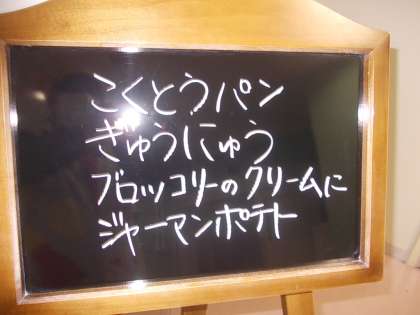 こくとうパン
ぎゅうにゅう
ブロッコリーのクリームに
ジャーマンポテト